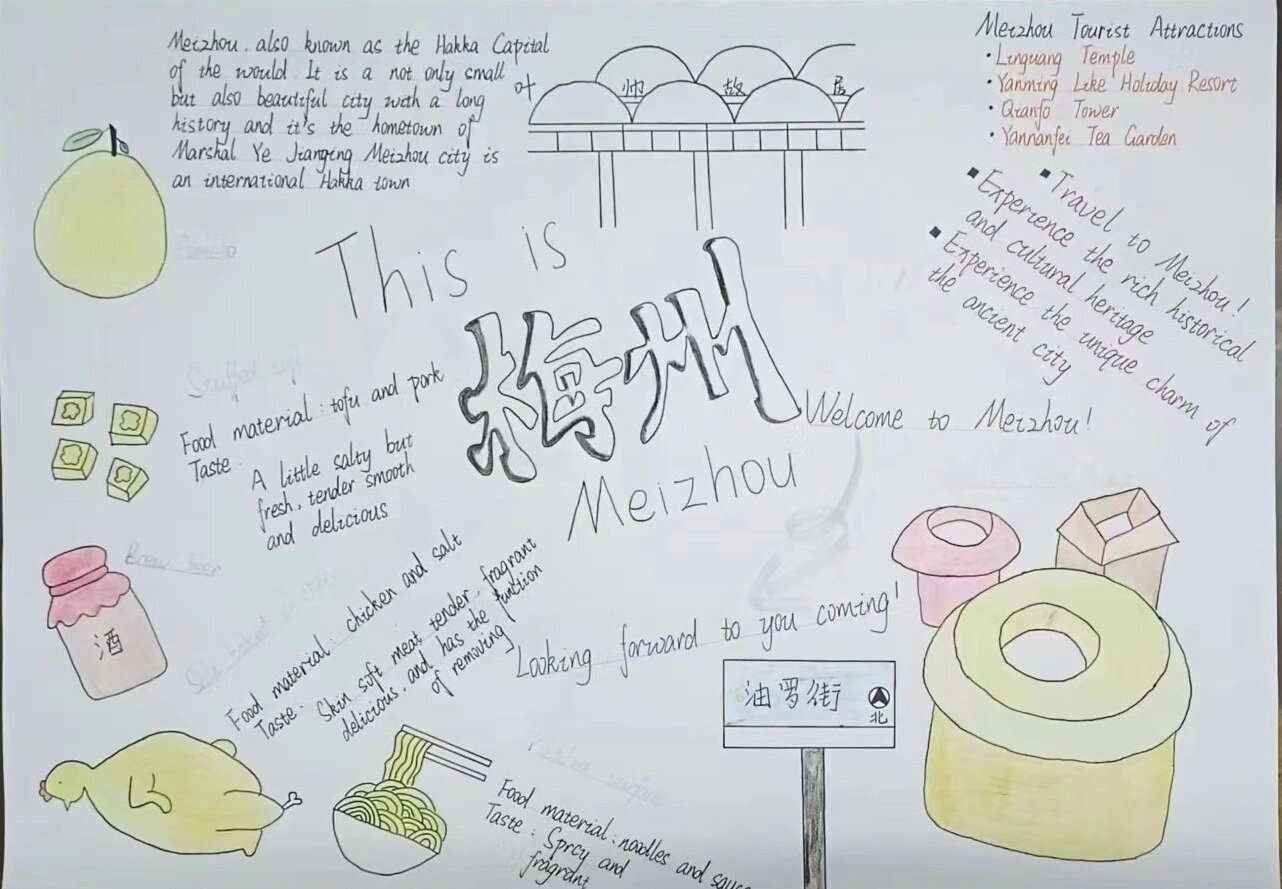 Meizhou. also known as the Hakka Capital
of the would. It is a not only small
but also beautiful city with a long
history and it's the hometown of
Marshal Ye Jianging Meizhou city is
an international Hakka town
叶 帅 故 居
Meizhou Tourist Attractions
·Linguang Temple
·Yanming Like Holiday Resort
·Qianfo Tower
·Yannanfei Tea Garden
▪Travel to Meizhou!
▪Experience the rich historical
and cultural heritage
▪Experience the unique charm of
the ancient city
Pomelo
This is
梅州
Meizhou
Welcome to Meizhou!
Looking forward to you coming!
Stuffed
Food material: tofu and pork
Taste.
A little salty but
fresh, tender smooth
and delicious
酒
Food material: chicken and salt
Taste. Skin soft meat tender, fragrant
delicious, and has the function
of removing
油罗街
北
Food material: noodles and sauce
Taste: Sprcy and
fragrant